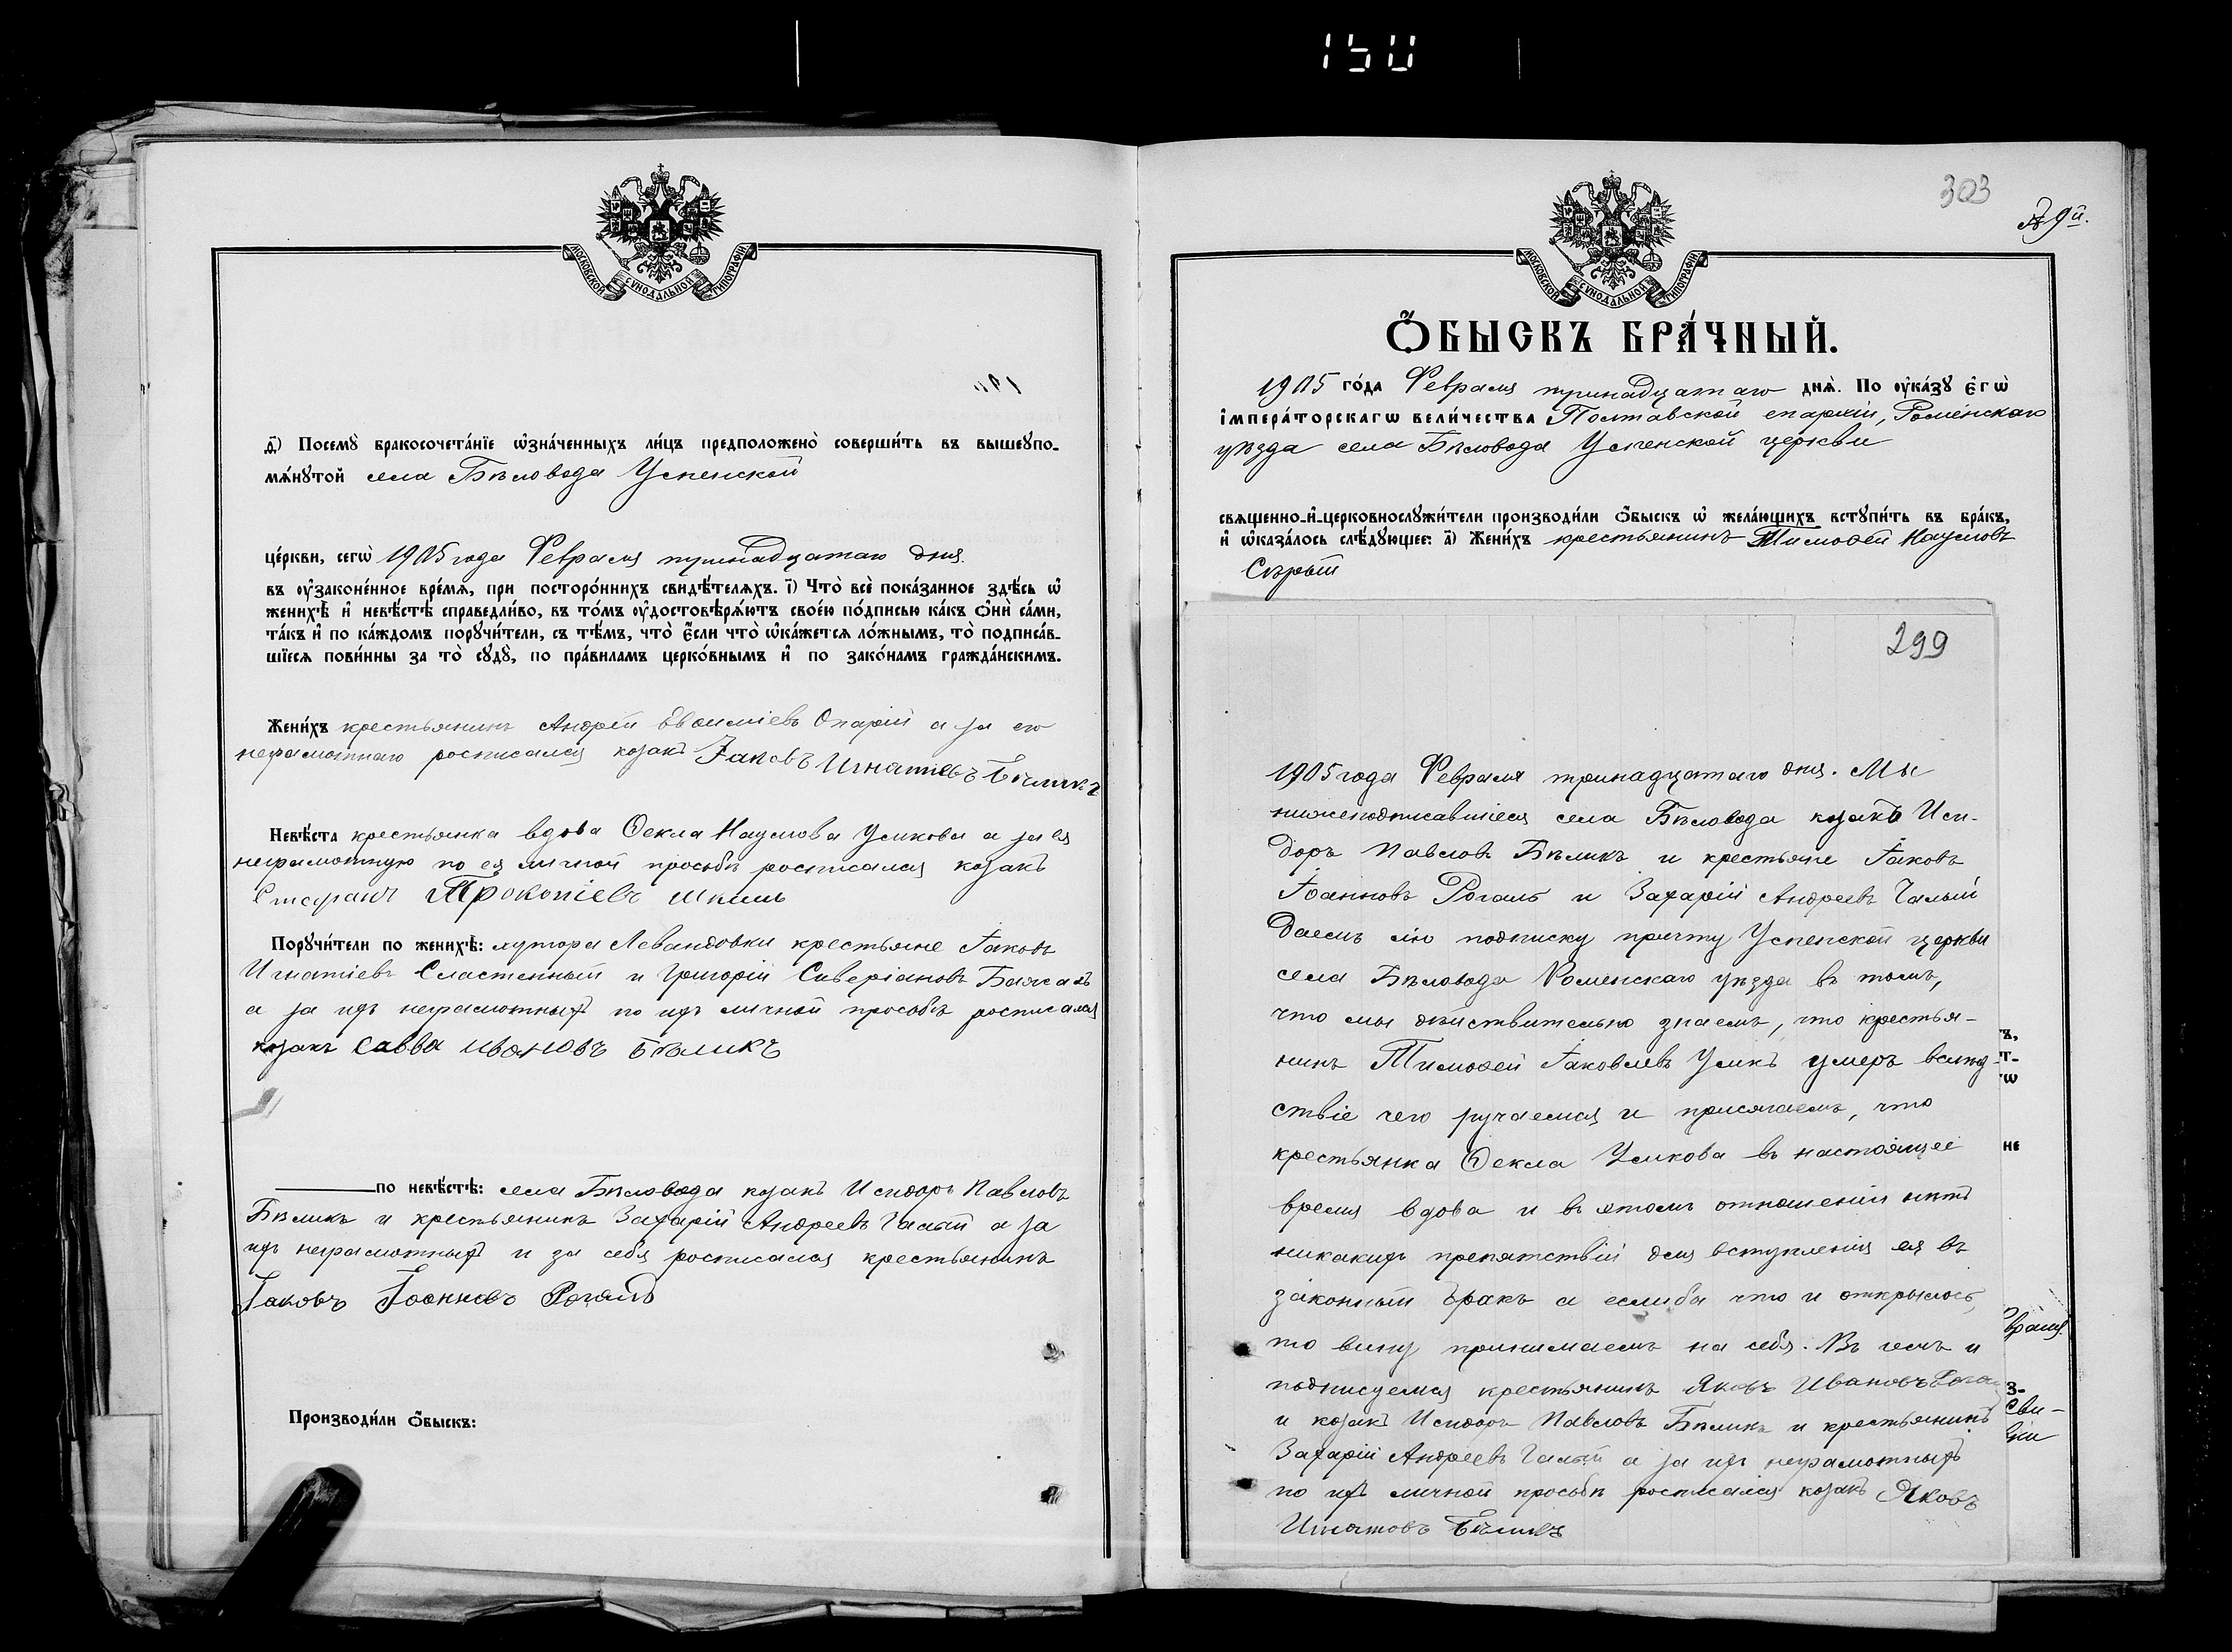 150
МОСКОВСКОЙ СѴНОДАЛЬНОЙ ТИПОГРАФІИ
ѳ҃) Посемꙋ̀ бракосочета́нїе ѡ҆зна́ченныхъ ли́цъ предположено̀ соверши́ть въ вышеꙋпо-
мѧ́нꙋтой села Бѣловода Успенской
це́ркви, сегѡ̀ 1905 года Февраля тринадцатаго дня.
въ ᲂу҆законе́нное вре́мѧ, при посторо́ннихъ свидѣ́телѧхъ. і҃) Что̀ всѐ пока́занное здѣ́сь ѡ҆
женихѣ̀ и҆ невѣ́стѣ справедли́во, въ то́мъ ᲂу҆достовѣрѧ́ютъ свое́ю по́дписью ка́къ ѻ҆нѝ са́ми,
та́къ и҆ по ка́ждомъ порꙋчи́тели, съ тѣ́мъ, что̀ є҆́сли что̀ ѡ҆ка́жетсѧ ло́жнымъ, то̀ подписа́в-
шїесѧ пови́нны за то̀ сꙋдꙋ̀, по пра́виламъ церко́внымъ и҆ по зако́намъ гражда́нскимъ.
Жени́хъ крестьянинъ Андрей Евѳиміевъ Опарій а за его
неграмотнаго росписался козакъ Іаковъ Игнатіевъ Бѣликъ
Невѣ́ста крестьянка вдова Ѳекла Наумова Усикова а за ея
неграмотную по ея личной просьбѣ росписался козакъ
Стефанъ Прокопіевъ Шкиль
Порꙋчи́тели по женихѣ̀: хутора Левандовки крестьяне Іаковъ
Игнатіевъ Сластенный и Григорій Саверіановъ
а за ихъ неграмотныхъ по ихъ личной просьбѣ росписался
козакъ Савва Ивановъ Бѣликъ
по невѣ́стѣ: села Бѣловода козакъ Исидоръ Павловъ
Бѣликъ и крестьянинъ Захарій Андреевъ Чалый а за
ихъ неграмотныхъ и за себя росписался крестьянинъ
Іаковъ Іоанновъ Рогаль
Производи́ли ѻ҆́быскъ:
303
№ 9й.
МОСКОВСКОЙ СѴНОДАЛЬНОЙ ТИПОГРАФІИ
Ѻ҆́БЫСКЪ БРА́ЧНЫЙ.
1905 го́да Февраля тринадцатаго днѧ̀. По ᲂу҆ка́зꙋ є҆гѡ̀
і҆мпера́торскагѡ вели́чества Полтавской епархіи, Роменскаго
уѣзда села Бѣловода Успенской церкви
свѧщенно-и҆-церковнослꙋжи́тели производи́ли ѻ҆́быскъ ѡ҆ жела́ющихъ встꙋпи́ть въ бра́къ,
и҆ ѡ҆каза́лось слѣ́дꙋющее: а҃) Жени́хъ крестьянинъ Тимоѳей Наумовъ
Сѣрый
299
1905 года Февраля тринадцатаго дня. Мы
нижеподписавшіеся села Бѣловода козакъ Иси-
доръ Павловъ Бѣликъ и крестьяне Іаковъ
Іоанновъ Рогаль и Захарій Андреевъ Чалый
Даемъ сію подписку причту Успенской церкви
села Бѣловода Роменскаго уѣзда въ томъ,
что мы дѣйствительно знаемъ, что крестья-
нинъ Тимоѳей Іаковлевъ Усикъ умеръ вслѣд-
ствіе чего ручаемся и присягаемъ, что
крестьянка Ѳекла Усикова въ настоящее
время вдова и въ этомъ отношеніи нѣтъ
никакихъ препятствій для вступленія ея въ
законный бракъ а еслибы что и открылось,
то вину принимаемъ на себя. Въ чемъ и
подписуемся крестьянинъ Яковъ Ивановъ Рогаль
и козакъ Исидоръ Павловъ Бѣликъ и крестьянинъ
Захарій Андреевъ Чалый а за ихъ неграмотныхъ
по ихъ личной просьбѣ росписался козакъ Яковъ
Игнатовъ Бѣликъ